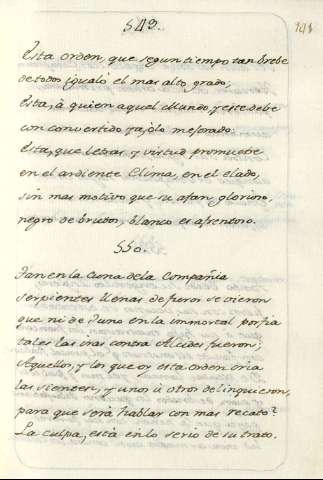 549.
Esta orden, que segun tiempo tan brebe
de todos igualó el mas alto grado;
Esta, à quien aquel Mundo, y este debe
con convertido y ajólo mejorado:
Esta, que letras, y virtud promuebe
en el ardiente Clima, en el elado,
sin mas motivo que su afan glorioso,
negro de brutos, blanco es afrentoso.
550.
Tan en la Cuna de la Compañia
serpientes llenas de furor se vieron
que ni de Juno en la inmortal porfia
tales las iras contra Alcides fueron;
Aquellos, y los que oy esta orden cria
las sienten, y unos ù otros delinquieron,
para que será hablar con mas recato?
La culpa, està en lo serio de su trato.